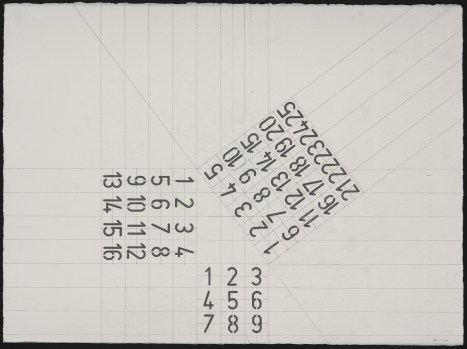 1 2 3 4
5 6 7 8
9 10 11 12
13 14 15 16
1 2 3 4 5
6 7 8 9 10
11 12 13 14 15
16 17 18 19 20
21 22 23 24 25
1 2 3
4 5 6
7 8 9